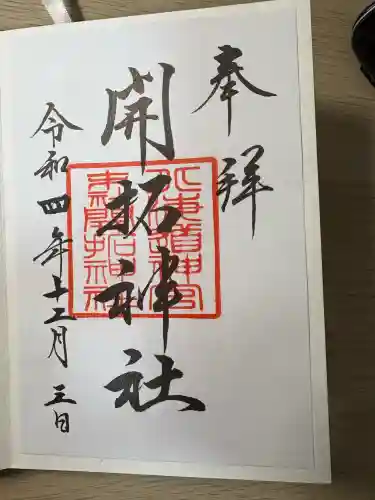 奉拝
開拓神社
北海道神宮
末廟開拓神社
令和四年十二月三日